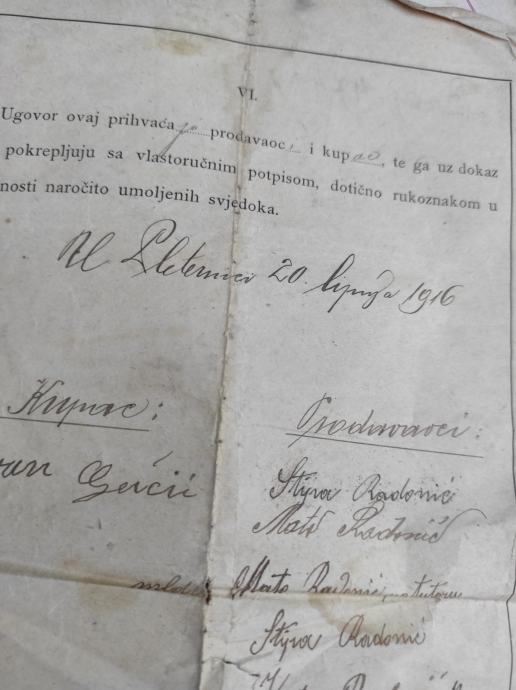 VI.
Ugovor ovaj prihvaća ju prodavaoci i kupac, te ga uz dokaz
pokrepljuju sa vlastoručnim potpisom, dotično rukoznakom u
nosti naročito umoljenih svjedoka.
U Pleternici 20. lipnja 1916
Kupac:
Prodavaoci:
Radonić
Mato Radonić
Mato Radonić
Radonić